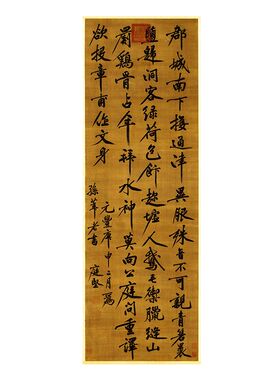 郡城南下接通津異服殊音不可親青箬裹
鹽歸洞客綠荷包飯趁墟人鵝毛禦臘縫山
罽鷄骨占年拜水神莫向公庭問重譯
欲投章甫作文身
元豐庚申二月為
孫莘老書 庭堅